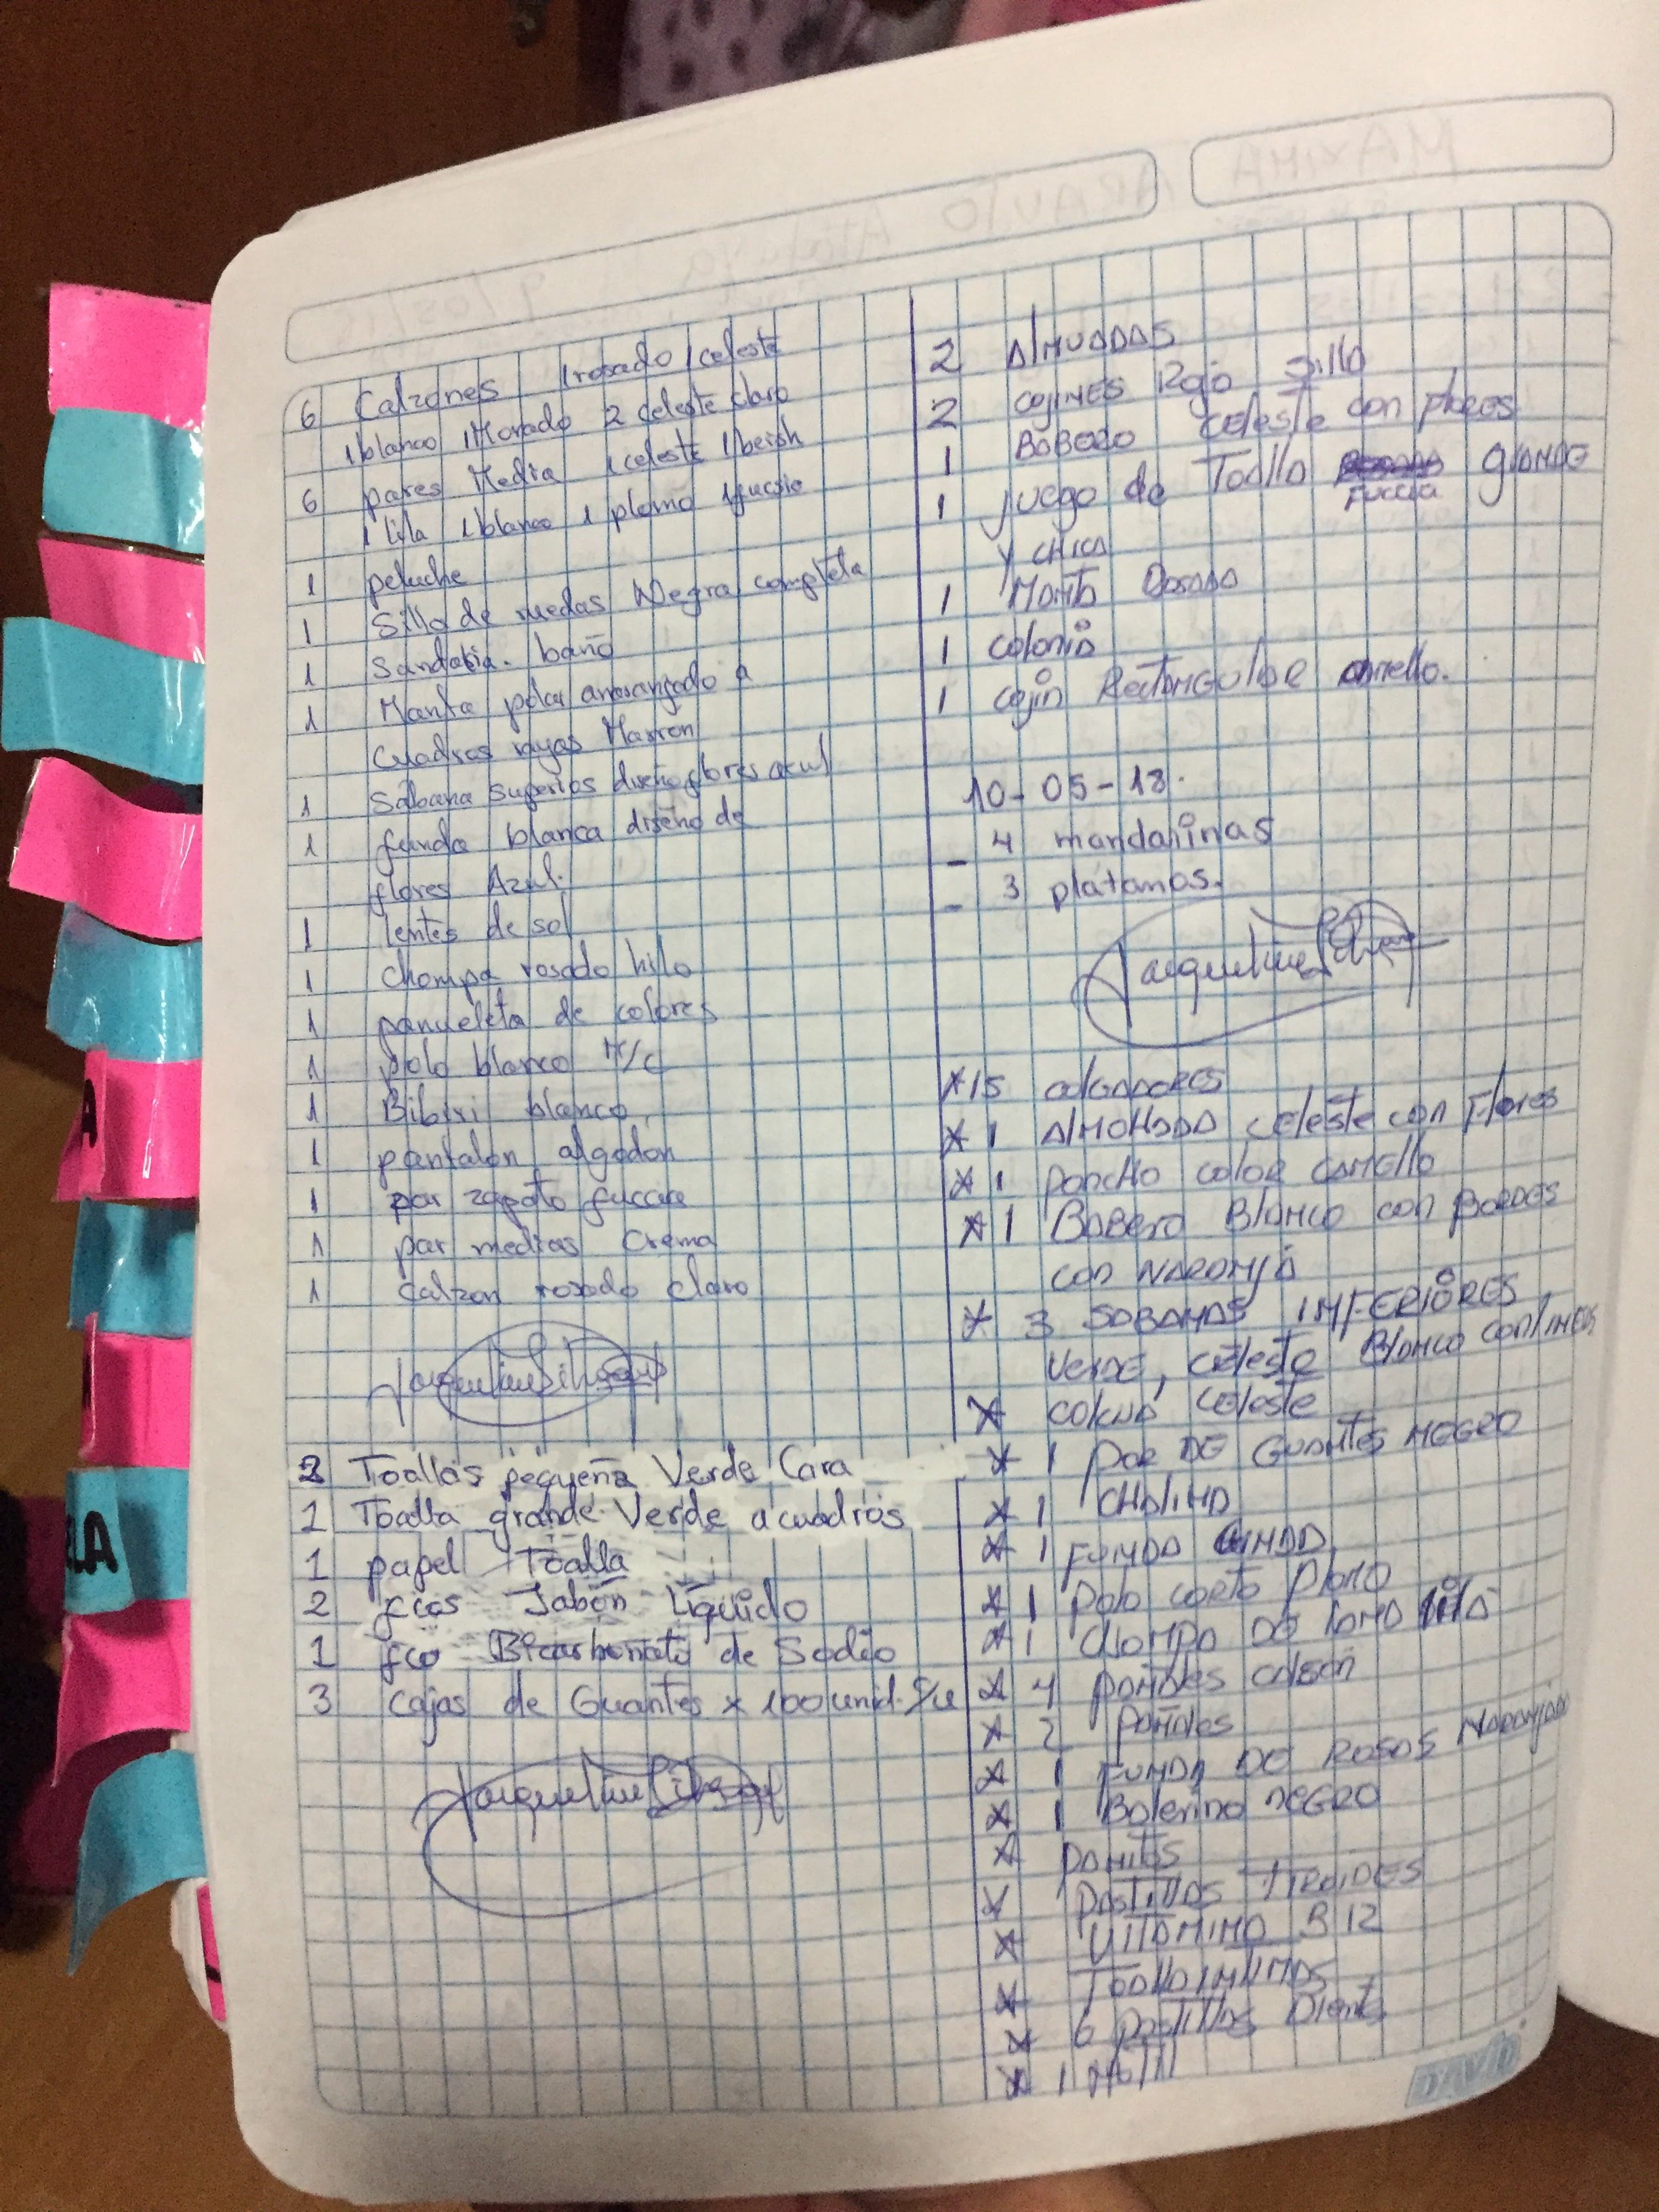 6 Calzones 1rosado 1celeste
1blanco 1Morado 2 celeste claro
6 pares Media 1celeste 1beish
1 lila 1blanco 1 plomo 1fucsia
1 peluche
1 Silla de ruedas Negra completa
1 Sandalia. baño
1 Manta polar anaranjado a
Cuadros rayas Marron
1 Sabana superios diseño flores azul
1 funda blanca diseño de
flores Azul.
1 lentes de sol
1 chompa rosado hilo
1 panueleta de colores
1 polo blanco M/c
1 Bibiri blanco,
1 pantalon algodon
1 par zapato
1 par medias crema
1 calzon rosado claro
2 Toallas pequeña Verde Cara
1 Toalla grande Verde a cuadros
1 papel Toalla
2 fcos Jabón Líquido
1 fco Bicarbonato de Sodio
3 cajas de Guantes x 100 unid. c/u
2 AlMUADAS
2 COJINES Rojo Silla
1 BABERO celeste con flores
1 juego de Toalla GRANDE
Fuccia
Y CHICA
1 MANTA ROSADA
1 colonia
1 cojin RECTANGULAR
10-05-18.
- 4 mandarinas
- 3 platanos.
*15 
* 1 AlMOHADA celeste con Flores
* 1 PONCHO COLOR CAMELLO
* 1 BABERO BLANCO con BORDES
con NARANJA
* 3 SABANAS INFERIORES
VERDE, celeste BLANCO con lineas
* COLCHA celeste
* 1 PAR DE GUANTES NEGRO
* 1 CHALINA
* 1 FUNDA
* 1 Polo corto Plomo
* 1 CHOMPA DE LANA lila
* 4 PAÑALES calson
* 2 PAÑALES
* 1 FUNDA DE ROSAS NARANJADA
* 1 Bolerino NEGRO
* PAÑITOS
* PASTILLAS TIROIDES
* VITAMINA B 12
* TOALLA INTIMAS
* 6 PASTILLAS Dientes
* 1
DAVID
MAXIMA ARAUJO